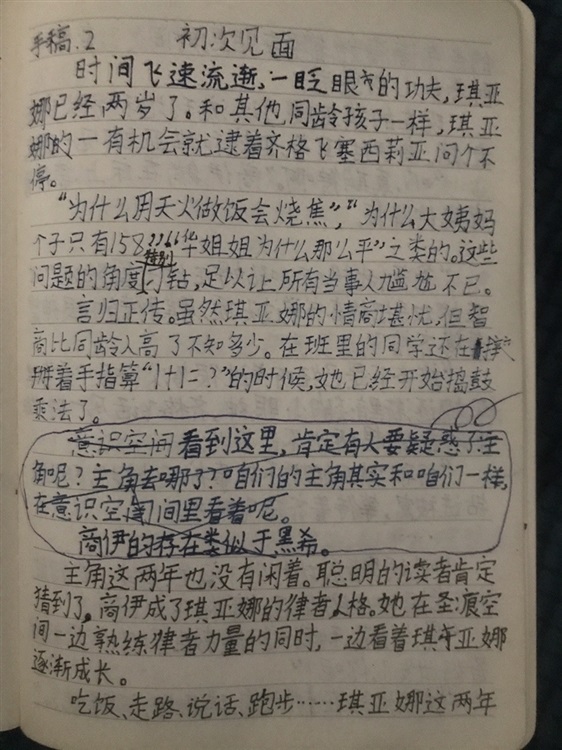 手稿.2 初次见面
时间飞速流逝,一眨眼的功夫,琪亚
娜已经两岁了。和其他同龄孩子一样,琪亚
娜的一有机会就逮着齐格飞塞西莉亚问个不
停。
“为什么用天火做饭会烧焦”,“为什么大姨妈
个子只有158??”“华姐姐为什么那么平”之类的。这些
问题的角度特别刁钻,足以让所有当事人尴尬不已。
言归正传。虽然琪亚娜的情商堪忧,但智
商比同龄人高了不知多少。在班里的同学还在
掰着手指算“1+1=?”的时候,她已经开始捣鼓
乘法了。
意识空间看到这里,肯定有人要疑惑了:主
角呢?主角去哪了?咱们的主角其实和咱们一样,
在意识空间里看着呢。
高伊的存在类似于黑希。
主角这两年也没有闲着。聪明的读者肯定
猜到了,高伊成了琪亚娜的律者人格。她在圣痕空
间一边熟练律者力量的同时,一边看着琪亚娜
逐渐成长。
吃饭、走路、说话、跑步……琪亚娜这两年